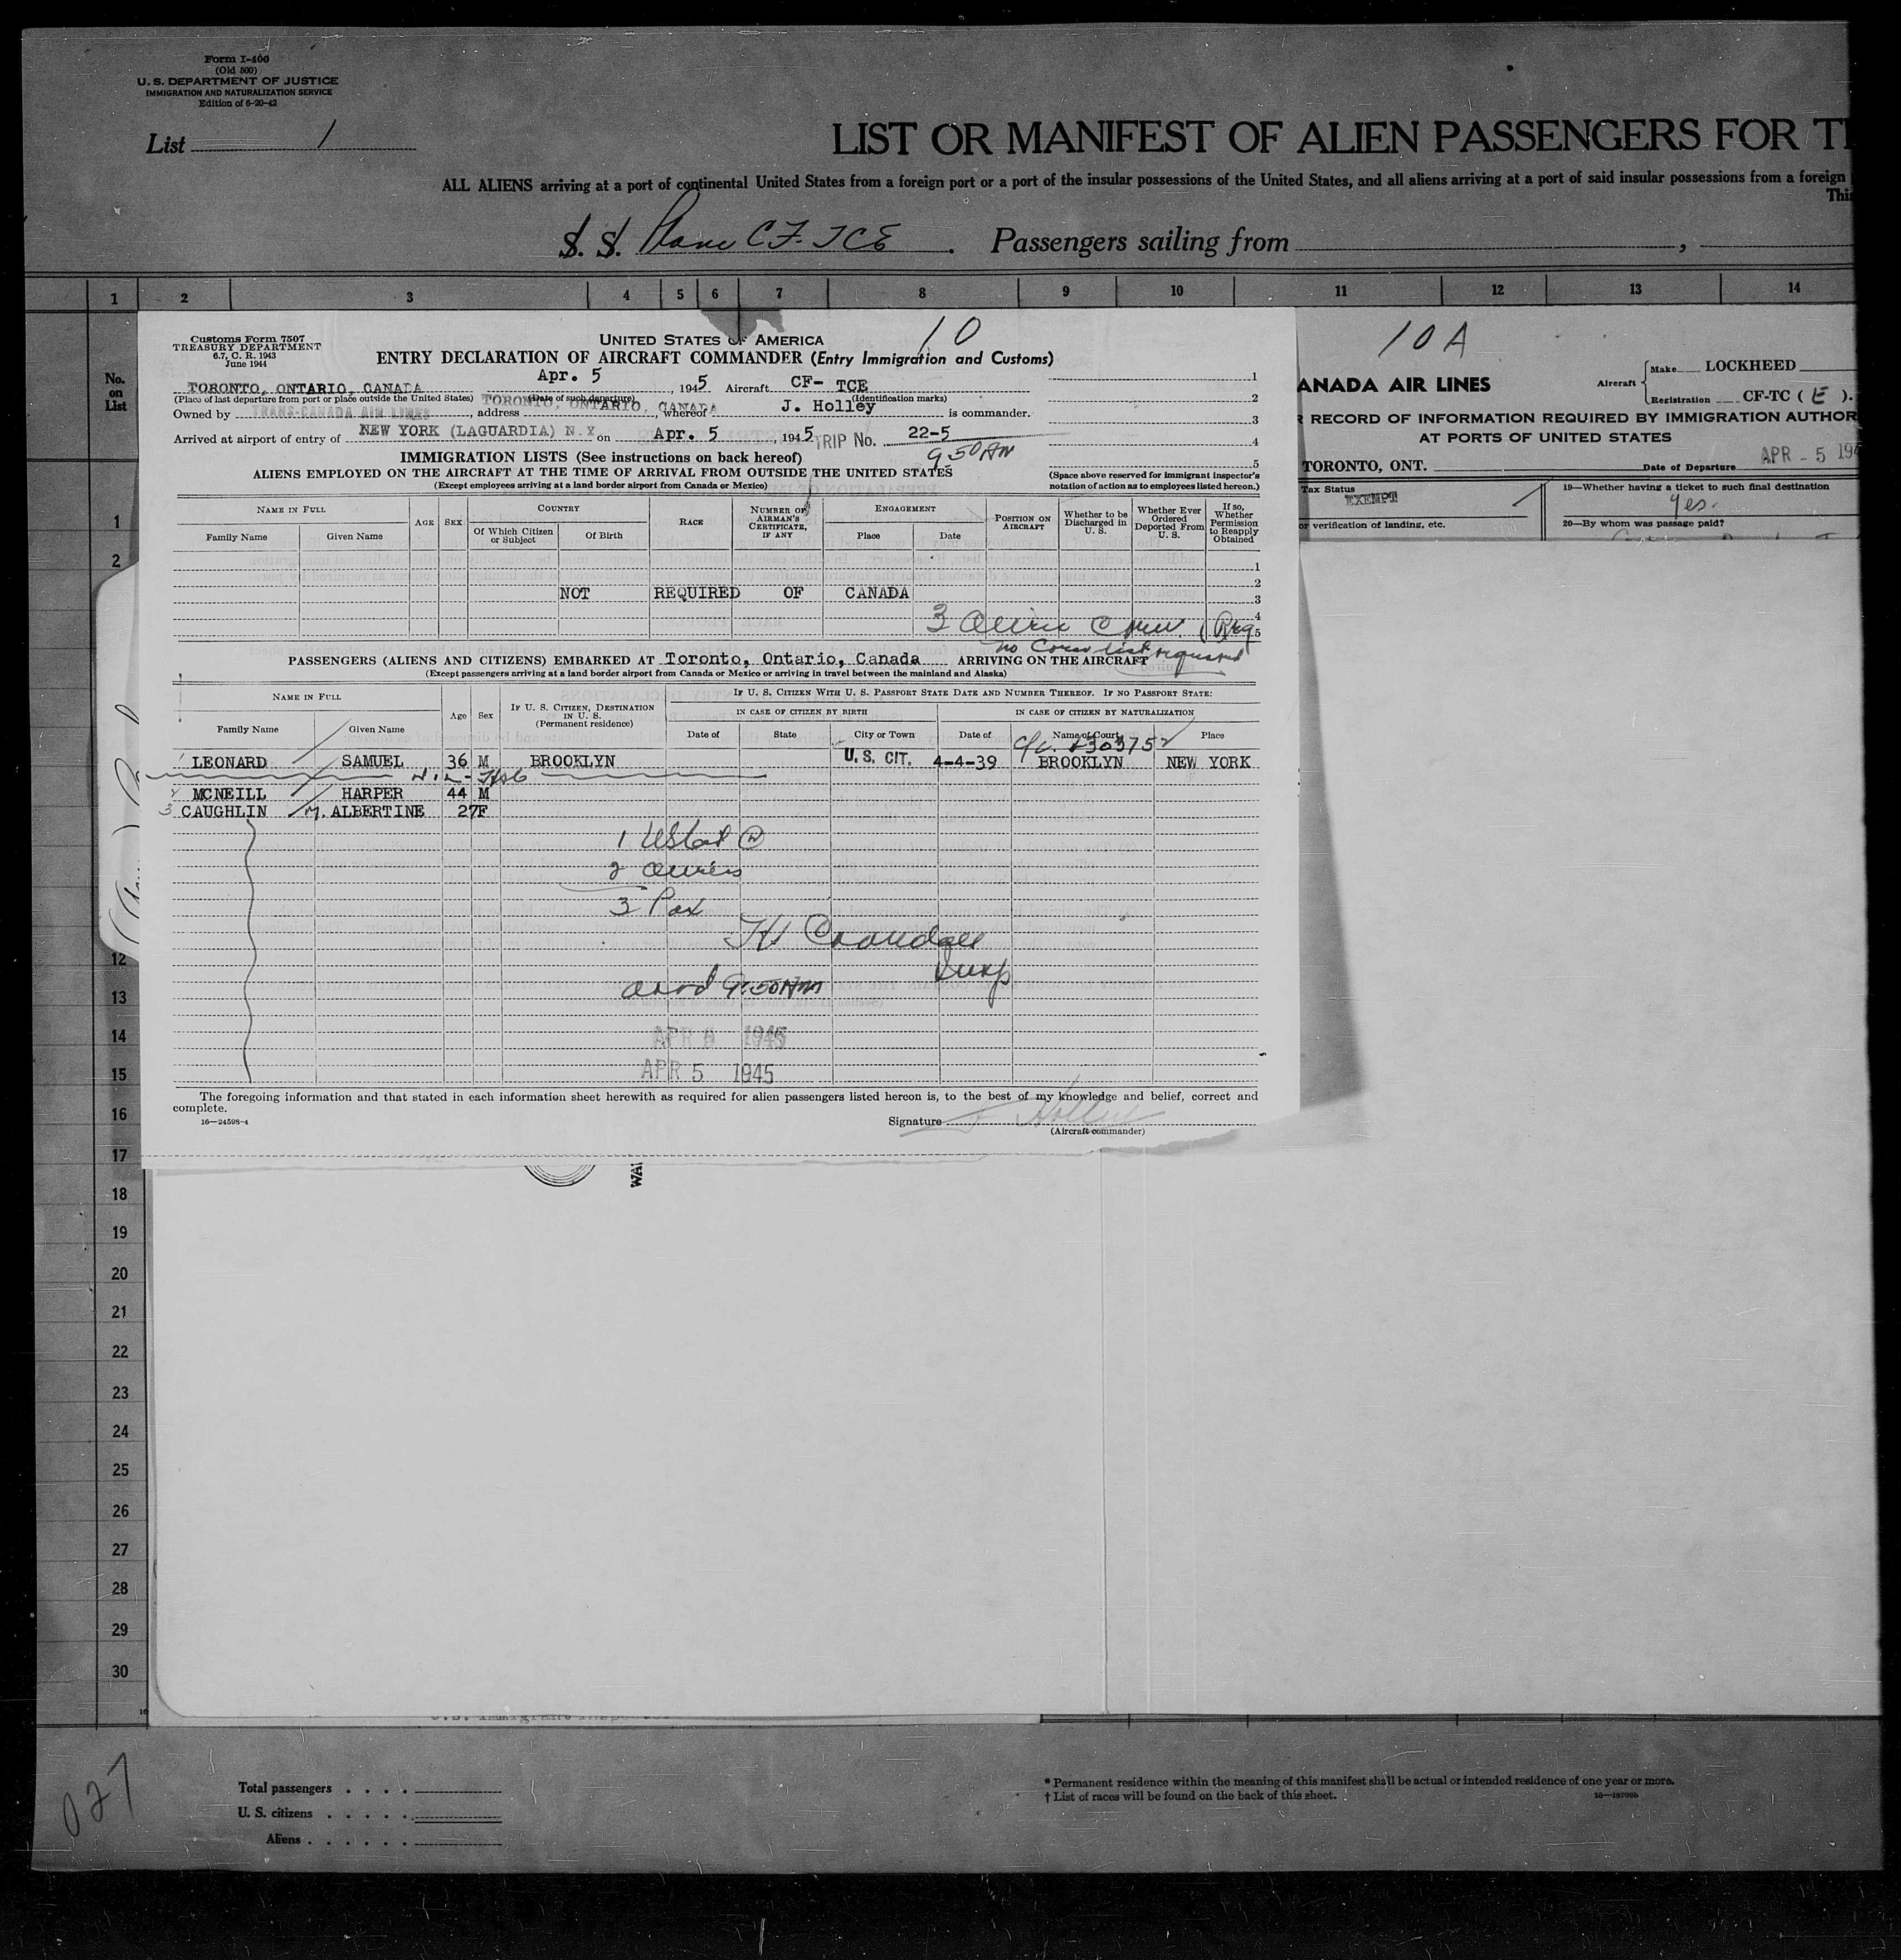 Form I-400
(Old 500)
U. S. DEPARTMENT OF JUSTICE
IMMIGRATION AND NATURALIZATION SERVICE
Edition of 6-20-42
List 1
LIST OR MANIFEST OF ALIEN PASSENGERS FOR TH
ALL ALIENS arriving at a port of continental United States from a foreign port or a port of the insular possessions of the United States, and all aliens arriving at a port of said insular possessions from a foreign
This
S. S. Plane CF-TCE. Passengers sailing from ,
1 2 3 4 5 6 7 8 9 10 11 12 13 14
No. on List
Customs Form 7507
TREASURY DEPARTMENT
6.7, C. R. 1943
June 1944
UNITED STATES OF AMERICA
10
ENTRY DECLARATION OF AIRCRAFT COMMANDER (Entry Immigration and Customs)
TORONTO, ONTARIO, CANADA Apr. 5, 1945 Aircraft CF- TCE
(Place of last departure from port or place outside the United States) (Date of such departure) (Identification marks)
Owned by TRANS-CANADA AIR LINES, address TORONTO, ONTARIO, CANADA, whereof J. Holley is commander.
Arrived at airport of entry of NEW YORK (LAGUARDIA) N.Y. on Apr. 5, 1945 TRIP No. 22-5
9:50 AM
1
2
3
4
5
IMMIGRATION LISTS (See instructions on back hereof)
ALIENS EMPLOYED ON THE AIRCRAFT AT THE TIME OF ARRIVAL FROM OUTSIDE THE UNITED STATES
(Except employees arriving at a land border airport from Canada or Mexico)
(Space above reserved for immigrant inspector's notation of action as to employees listed hereon.)
NAME IN FULL
Family Name Given Name
AGE SEX
COUNTRY
Of Which Citizen or Subject Of Birth
RACE
NUMBER OF AIRMAN'S CERTIFICATE, IF ANY
ENGAGEMENT
Place Date
POSITION ON AIRCRAFT
Whether to be Discharged in U. S.
Whether Ever Ordered Deported From U. S.
If so, Whether Permission to Reapply Obtained
1
2
NOT REQUIRED OF CANADA 3
4
5
3 Alien Crew
no Crew list required
PASSENGERS (ALIENS AND CITIZENS) EMBARKED AT Toronto, Ontario, Canada ARRIVING ON THE AIRCRAFT
(Except passengers arriving at a land border airport from Canada or Mexico or arriving in travel between the mainland and Alaska)
NAME IN FULL
Family Name Given Name
Age Sex
IF U. S. CITIZEN, DESTINATION IN U. S.
(Permanent residence)
IF U. S. CITIZEN WITH U. S. PASSPORT STATE DATE AND NUMBER THEREOF. IF NO PASSPORT STATE:
IN CASE OF CITIZEN BY BIRTH
IN CASE OF CITIZEN BY NATURALIZATION
Date of State City or Town Date of Name of Court Place
1 LEONARD SAMUEL 36 M BROOKLYN U. S. CIT. 4-4-39 BROOKLYN NEW YORK
2 MCNEILL HARPER 44 M
3 CAUGHLIN M. ALBERTINE 27 F
2 Aliens
3 Pax
arrd 9:50 AM
APR 5 1945
APR 5 1945
The foregoing information and that stated in each information sheet herewith as required for alien passengers listed hereon is, to the best of my knowledge and belief, correct and
complete.
16—24598-4
Signature J Holley
(Aircraft commander)
10 A
ANADA AIR LINES
Aircraft Make LOCKHEED
Registration CF-TC ( E ).
R RECORD OF INFORMATION REQUIRED BY IMMIGRATION AUTHOR
AT PORTS OF UNITED STATES
TORONTO, ONT. Date of Departure APR - 5 194
Tax Status EXEMPT
19—Whether having a ticket to such final destination
Yes.
or verification of landing, etc.
20—By whom was passage paid?
1
2
12
13
14
15
16
17
18
19
20
21
22
23
24
25
26
27
28
29
30
WAI
027
Total passengers
U. S. citizens
Aliens
* Permanent residence within the meaning of this manifest shall be actual or intended residence of one year or more.
† List of races will be found on the back of this sheet.